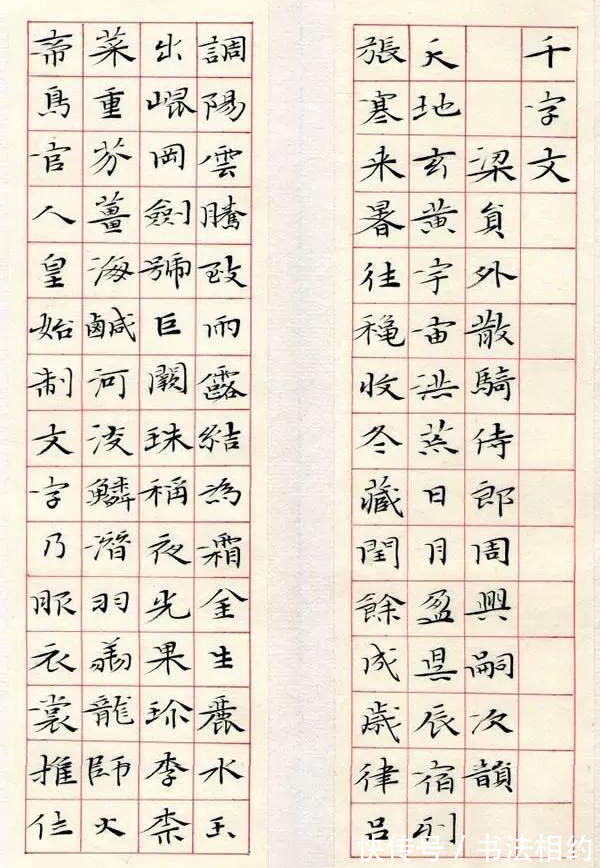 千字文
梁員外散騎侍郎周興嗣次韻
天地玄黃宇宙洪荒日月盈昃辰宿列
張寒来暑往穐收冬藏閏餘成歲律吕
調陽雲騰致雨露結為霜金生麗水玉
出崐岡劍號巨闕珠稱夜光果珎李柰
菜重芥薑海鹹河淡鱗潛羽翔龍師火
帝鳥官人皇始制文字乃服衣裳推位
快传号 / 书法相约